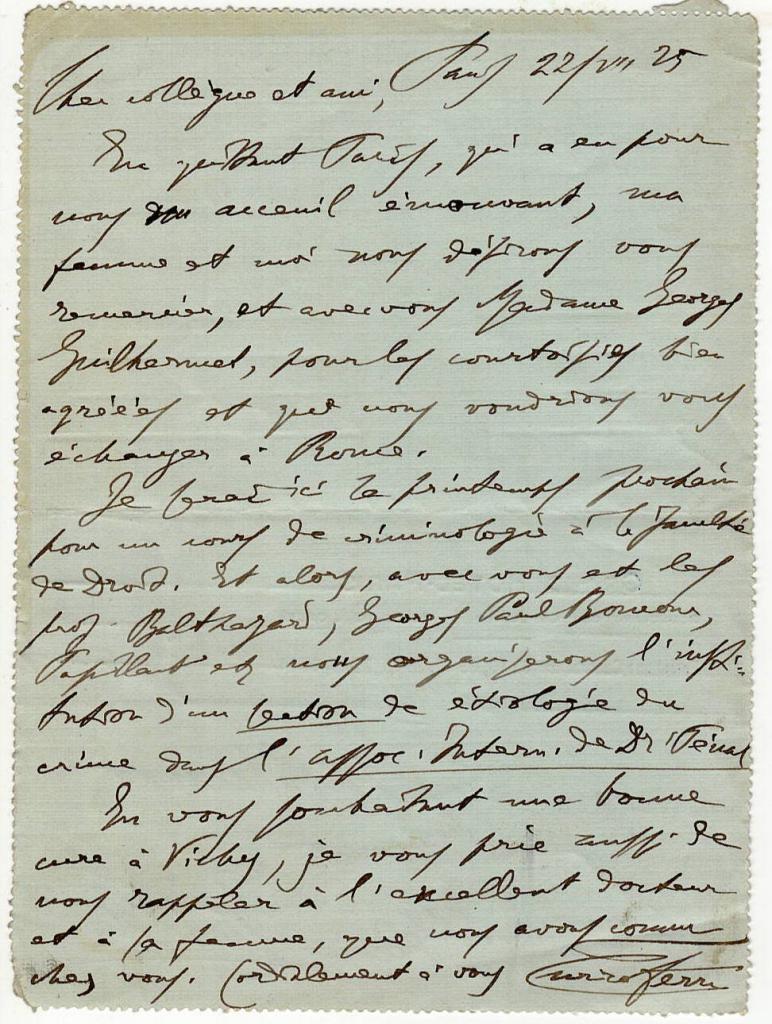 Cher collègue et ami, Paris 22/VII 25
En quittant Paris, qui a eu pour
nous un acceuil émouvant, ma
femme et moi nous désirons vous
remercier, et avec vous Madame Georges
Guilhermet, pour les courtoisies bien
agréées et que nous voudrions vous
échanger à Rome.
Je serai ici le printemps prochain
pour un cours de criminologie à la Faculté
de Droit. Et alors, avec vous et les
prof. Balthazard, Georges Paul Boncour,
Papillault et nous organiserons l'insti-
tution d'un section de étiologie du
crime dans l'assoc. Intern. de Dr. Pénal
En vous souhaitant une bonne
cure à Vichy, je vous prie aussi de
nous rappeler à l'excellent docteur
et à sa femme, que nous avons connu
chez vous. Cordialement à vous Enrico Ferri